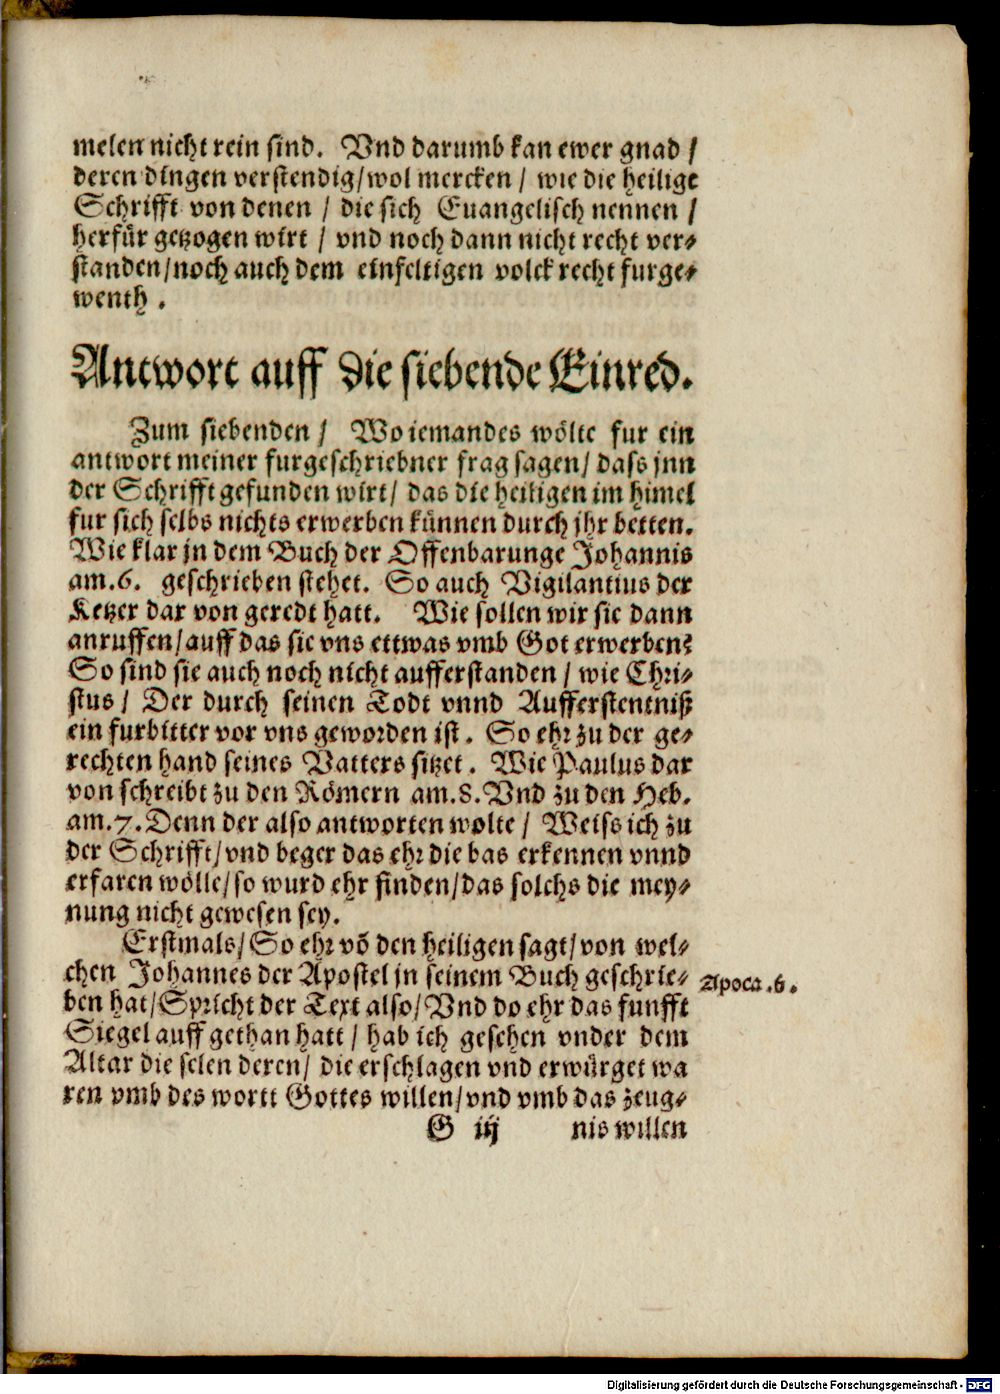 melen nicht rein sind. Vnd darumb kan ewer gnad /
deren dingen verstendig/wol mercken / wie die heilige
Schrifft von denen / die sich Euangelisch nennen /
herfür getzogen wirt / vnd noch dann nicht recht ver-
standen/noch auch dem einfeltigen volck recht furge-
wenth .
Antwort auff die siebende Einred.
Zum siebenden / Wo iemandes wölte fur ein
antwort meiner furgeschriebner frag sagen/ dass jnn
der Schrifft gefunden wirt/ das die heiligen im himel
fur sich selbs nichts erwerben künnen durch jhr betten.
Wie klar jn dem Buch der Offenbarunge Johannis
am.6. geschrieben stehet. So auch Vigilantius der
Ketzer dar von geredt hatt. Wie sollen wir sie dann
anruffen/auff das sie vns ettwas vmb Got erwerben?
So sind sie auch noch nicht aufferstanden / wie Chri-
stus / Der durch seinen Todt vnnd Aufferstentniß
ein furbitter vor vns geworden ist. So ehr zu der ge-
rechten hand seines Vatters sitzet. Wie Paulus dar
von schreibt zu den Römern am.8. Vnd zu den Heb.
am.7. Denn der also antworten wolte / Weiss ich zu
der Schrifft/vnd beger das ehr die bas erkennen vnnd
erfaren wölle/so wurd ehr finden/das solchs die mey-
nung nicht gewesen sey.
Erstmals/So ehr võ den heiligen sagt/von wel-
chen Johannes der Apostel jn seinem Buch geschrie-
ben hat/Spricht der Text also/Vnd do ehr das funfft
Siegel auff gethan hatt / hab ich gesehen vnder dem
Altar die selen deren/ die erschlagen vnd erwürget wa
ren vmb des wortt Gottes willen/vnd vmb das zeug-
G iij nis willen
Apoca.6.
Digitalisierung gefördert durch die Deutsche Forschungsgemeinschaft - DFG